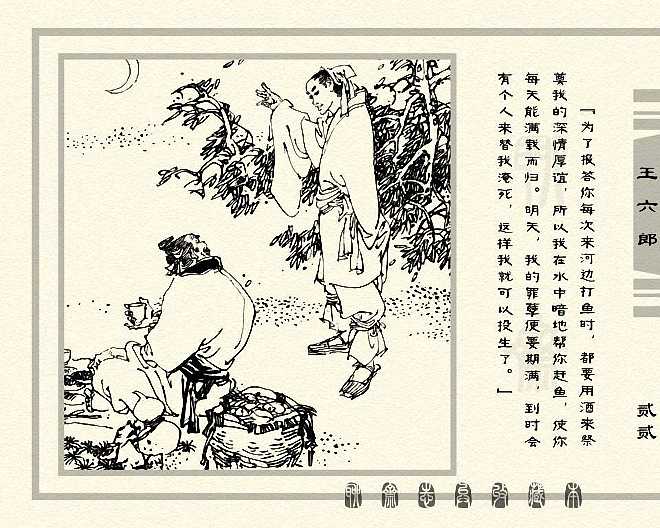 「为了报答你每次来河边打鱼时，都要用酒来祭
奠我的深情厚谊，所以我在水中暗地帮你赶鱼，使你
每天能满载而归。明天，我的罪孽便要期满，到时会
有个人来替我淹死，这样我就可以投生了。」
王六郎
贰贰
聊斋志异收藏本